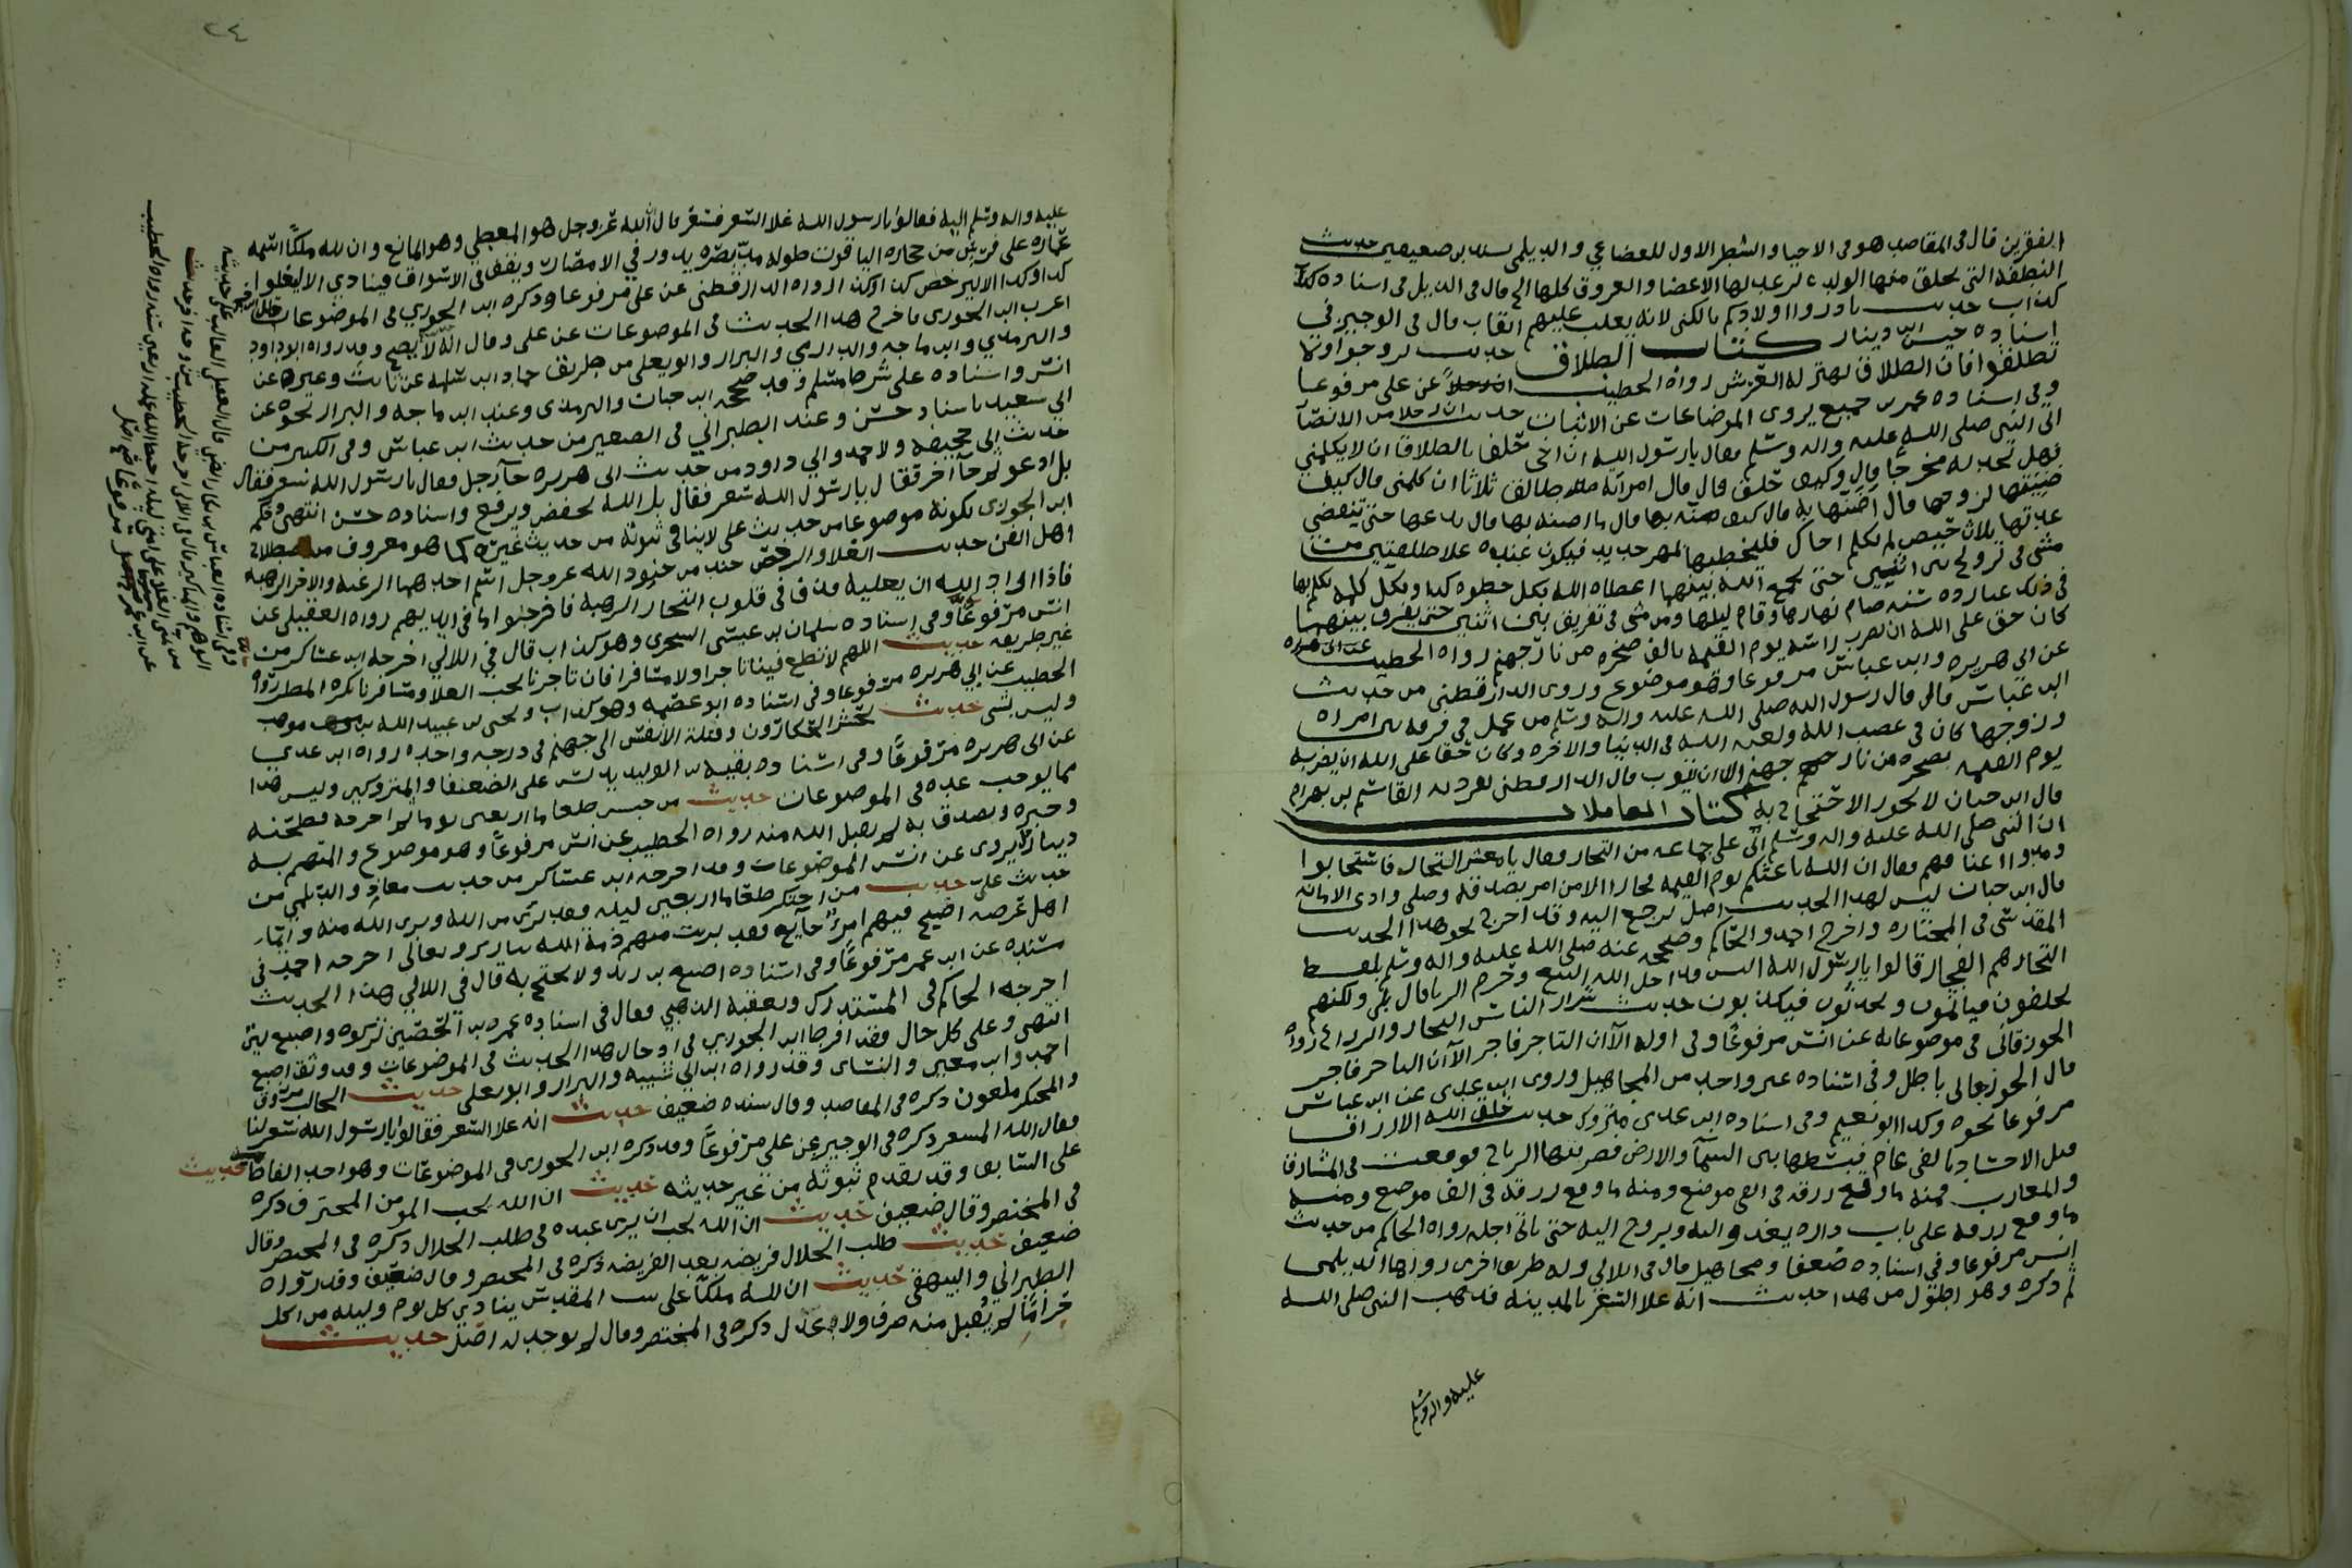 الفقرين قال في المقاصد هو في الاحيا والشطر الاول للقضاعي والديلمي بسندين ضعيفين حديث
النطفة التي يخلق منها الولد لها الاعضا والعروق كلها الخ قال في الذيل في اسناده
كذاب حديث بادروا اولادكم بالكنى لا يغلب عليهم القاب قال في الوجيز في
اسناده حبيش ابن دينار كتاب الطلاق حديث تزوجوا ولا
تطلقوا فان الطلاق يهتز له العرش رواه الخطيب عن علي مرفوعا
وفي اسناده عمرو بن جميع يروى الموضاعات عن الاثبات حديث ان رجلا من الانصار
اتى النبي صلى الله عليه واله وسلم فقال يا رسول الله ان اخي حلف بالطلاق ان لا يكلمني
فهل تجد له مخرجا قال وكيف حلف قال قال امراته طالق ثلاثا ان كلمني قال كيف
ضنتها لزوجها قال قال كيف بها قال قال يدعها حتى تنقضي
عدتها بثلاث حيض ثم تكلم اخاك فليخطبها بمهر جديد فيكون عنده على طلقتين من
مشى في تزويج بين اثنين حتى يجمع الله بينهما اعطاه الله بكل خطوه كذا وبكل كلمه تكلم بها
في ذلك عباده سنه صام نهارها وقام ليلها ومن مشى في تفريق بين اثنين حتى يفرق بينهما
كان حق على الله ان يضرب راسه يوم القيمه بالف صخره من نار جهنم رواه الخطيب
عن ابي هريره وابن عباس مرفوعا وهو موضوع وروى الدارقطني من حديث
ابن عباس قال قال رسول الله صلى الله عليه واله وسلم من عمل في فرقه بين امراه
وزوجها كان في غضب الله ولعنه الله في الدنيا والاخره وكان حقا على الله ان يضربه
يوم القيمه بصخره من نار جهنم الا ان يتوب قال الدارقطني تفرد به القاسم بن بهرام
قال ابن حبان لا يجوز الاحتجاج به كتاب المعاملات
ان النبي صلى الله عليه واله وسلم اتى على جماعه من التجار فقال يا معشر التجار فاستجابوا
ومدوا اعناقهم فقال ان الله باعثكم يوم القيمه فجارا الا من صدق وصلى وادى الامانه
قال ابن حبان ليس لهذا الحديث اصل يرجع اليه وقد اخرج نحو هذا الحديث
المقدسي في المختاره واخرج احمد والحاكم وصححه عنه صلى الله عليه واله وسلم بلفظ
التجار هم الفجار قالوا يا رسول الله اليس قد احل الله البيع وحرم الربا قال بلى ولكنهم
يحلفون فياثمون ويحدثون فيكذبون حديث شرار الناس التجار والزراع رواه
الجوزقاني في موضوعاته عن انس مرفوعا وفي اوله الا ان التاجر فاجر الا ان التاجر فاجر
قال الجوزجاني باطل وفي اسناده غير واحد من المجاهيل وروى ابن عدي عن ابن عباس
مرفوعا نحوه وكذا ابو نعيم وفي اسناده ابن عدي متروك حديث خلق الله الارزاق
قبل الاجساد بالفي عام فبسطها بين السمآ والارض فضربتها الرياح فوقعت في المشارق
والمغارب فمنه ما وقع رزقه في الفي موضع ومنه ما وقع رزقه في الف موضع ومنه
ما وقع رزقه على باب داره يغدو اليه ويروح اليه حتى ياتي اجله رواه الحاكم من حديث
انس مرفوعا وفي اسناده ضعفا ومجاهيل قال في اللالي وله طريق اخرى رواها الديلمي
ثم ذكره وهو اطول من هذا حديث انه غلا السعر بالمدينه فذهب النبي صلى الله
عليه واله وسلم
٢٤
عليه واله وسلم اليه فقالوا يا رسول الله غلا السعر فسعر قال الله عز وجل هو المعطي وهو المانع وان لله ملكا اسمه
عماره على فرس من حجاره الياقوت طوله مد بصره يدور في الامصار ويقف في الاسواق فينادي الا ليغلوا
كذا وكذا الا ليرخص كذا وكذا رواه الدارقطني عن علي مرفوعا وذكره ابن الجوزي في الموضوعات
اغرب ابن الجوزي باخرج هذا الحديث في الموضوعات عن علي وقال انه لا يصح وقد رواه ابو داود
والترمذي وابن ماجه والدارمي والبزار وابو يعلى من طريق حماد ابن سلمه عن ثابت وغيره عن
انس واسناده على شرط مسلم وقد صححه ابن حبان والترمذي وعند ابن ماجه والبزار نحوه عن
ابي سعيد باسناد حسن وعند الطبراني في الصغير من حديث ابن عباس وفي الكبير من
حديث ابي جحيفه ولاحمد وابي داود من حديث ابي هريره جآ رجل فقال يا رسول الله سعر فقال
بل ادعو ثم جآ اخر فقال يا رسول الله سعر فقال بل الله يخفض ويرفع واسناده حسن انتهى وحكم
ابن الجوزي بكونه موضوعا من حديث علي لا ينافي ثبوته من حديث غيره كما هو معروف من اصطلاح
اهل الفن حديث الغلا والرخص جند من جنود الله عز وجل اسم احدهما الرغبه والاخر الرهبه
فاذا اراد الله ان يغليه قذف في قلوب التجار الرهبه فاخرجوا ما في ايديهم رواه العقيلي عن
انس مرفوعا وفي اسناده سلمان بن عيسى السجزي وهو كذاب قال في اللالي اخرجه ابن عساكر من
غير طريقه حديث اللهم لا تطع فينا تاجرا ولا مسافرا فان تاجرنا يحب الغلا ومسافرنا يكره المطر رواه
الخطيب عن ابي هريره مرفوعا وفي اسناده ابو عصمه وهو كذاب ويحيى بن عبيد الله
وليس بشي حديث يحشر الحكارون وقتلة الانفس الى جهنم في درجه واحده رواه ابن عدي
عن ابي هريره مرفوعا وفي اسناده بقيه بن الوليد يدلس على الضعفا والمتروكين وليس هذا
مما يوجب عده في الموضوعات حديث من حبس طعاما اربعين يوما ثم اخرجه فطحنه
وخبزه وتصدق به لم يقبل الله منه رواه الخطيب عن انس مرفوعا وهو موضوع والمتهم به
دينار يروى عن انس الموضوعات وقد اخرجه ابن عساكر من حديث معاذ والديلمي من
حديث علي حديث من احتكر طعاما اربعين ليله فقد برئ من الله وبرى الله منه وايما
اهل عرصه اصبح فيهم امرؤ جايع فقد برئت منهم ذمة الله تبارك وتعالى اخرجه احمد في
مسنده عن ابن عمر مرفوعا وفي اسناده اصبغ بن زيد ولا يحتج به قال في اللالي هذا الحديث
اخرجه الحاكم في المستدرك وتعقبه الذهبي فقال في اسناده عمرو بن الحصين تركوه واصبغ لين
انتهى وعلى كل حال فقد افرط ابن الجوزي في ادخال هذا الحديث في الموضوعات وقد وثق اصبغ
احمد وابن معين والنساى وقد رواه ابن ابي شيبه والبزار وابو يعلى حديث الجالب مرزوق
والمحتكر ملعون ذكره في المقاصد وقال سنده ضعيف حديث انه غلا السعر فقالوا يا رسول الله سعر لنا
فقال الله المسعر ذكره في الوجيز عن علي مرفوعا وقد ذكره ابن الجوزي في الموضوعات وهو احد الفاظ حديث
على السابق وقد تقدم ثبوته من غير حديثه حديث ان الله يحب المومن المحترف ذكره
في المختصر وقال ضعيف حديث ان الله يحب ان يرى عبده في طلب الحلال ذكره في المختصر وقال
ضعيف حديث طلب الحلال فريضه بعد الفريضه ذكره في المختصر وقال ضعيف وقد رواه
الطبراني والبيهقي حديث ان لله ملكا على بيت المقدس ينادي كل يوم وليله من اكل
حراما لم يقبل منه صرف ولا عدل ذكره في المختصر وقال لم يوجد له اصل حديث